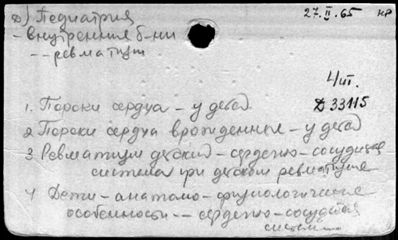 д) Педиатрия
27.II.65 КР
- Внутренния б-ни
-- ревматизм
4/III.
Д 33115
1. Пороки сердца - у детей
2 Пороки сердца врожденные - у детей
3 Ревматизм детский - сердечно-сосудистая
система при детском ревматизме
4 Дети - анатомо-физиологические
особенности -- сердечно-сосудистая
система